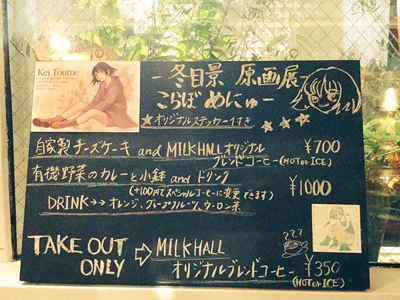 Kei Toume
- 冬目景 原画展
こらぼ めにゅー -
★オリジナルステッカー1枚つき
自家製チーズケーキ and MILKHALLオリジナル ¥700
ブレンドコーヒー(HOT or ICE)
有機野菜のカレーと小鉢 and ドリンク ¥1000
(+100円でスペシャルコーヒーに変更できます)
DRINK→→オレンジ、グレープフルーツ、ウーロン茶
TAKE OUT ONLY ⇨ MILKHALL
オリジナルブレンドコーヒー ¥350
(HOT or ICE)